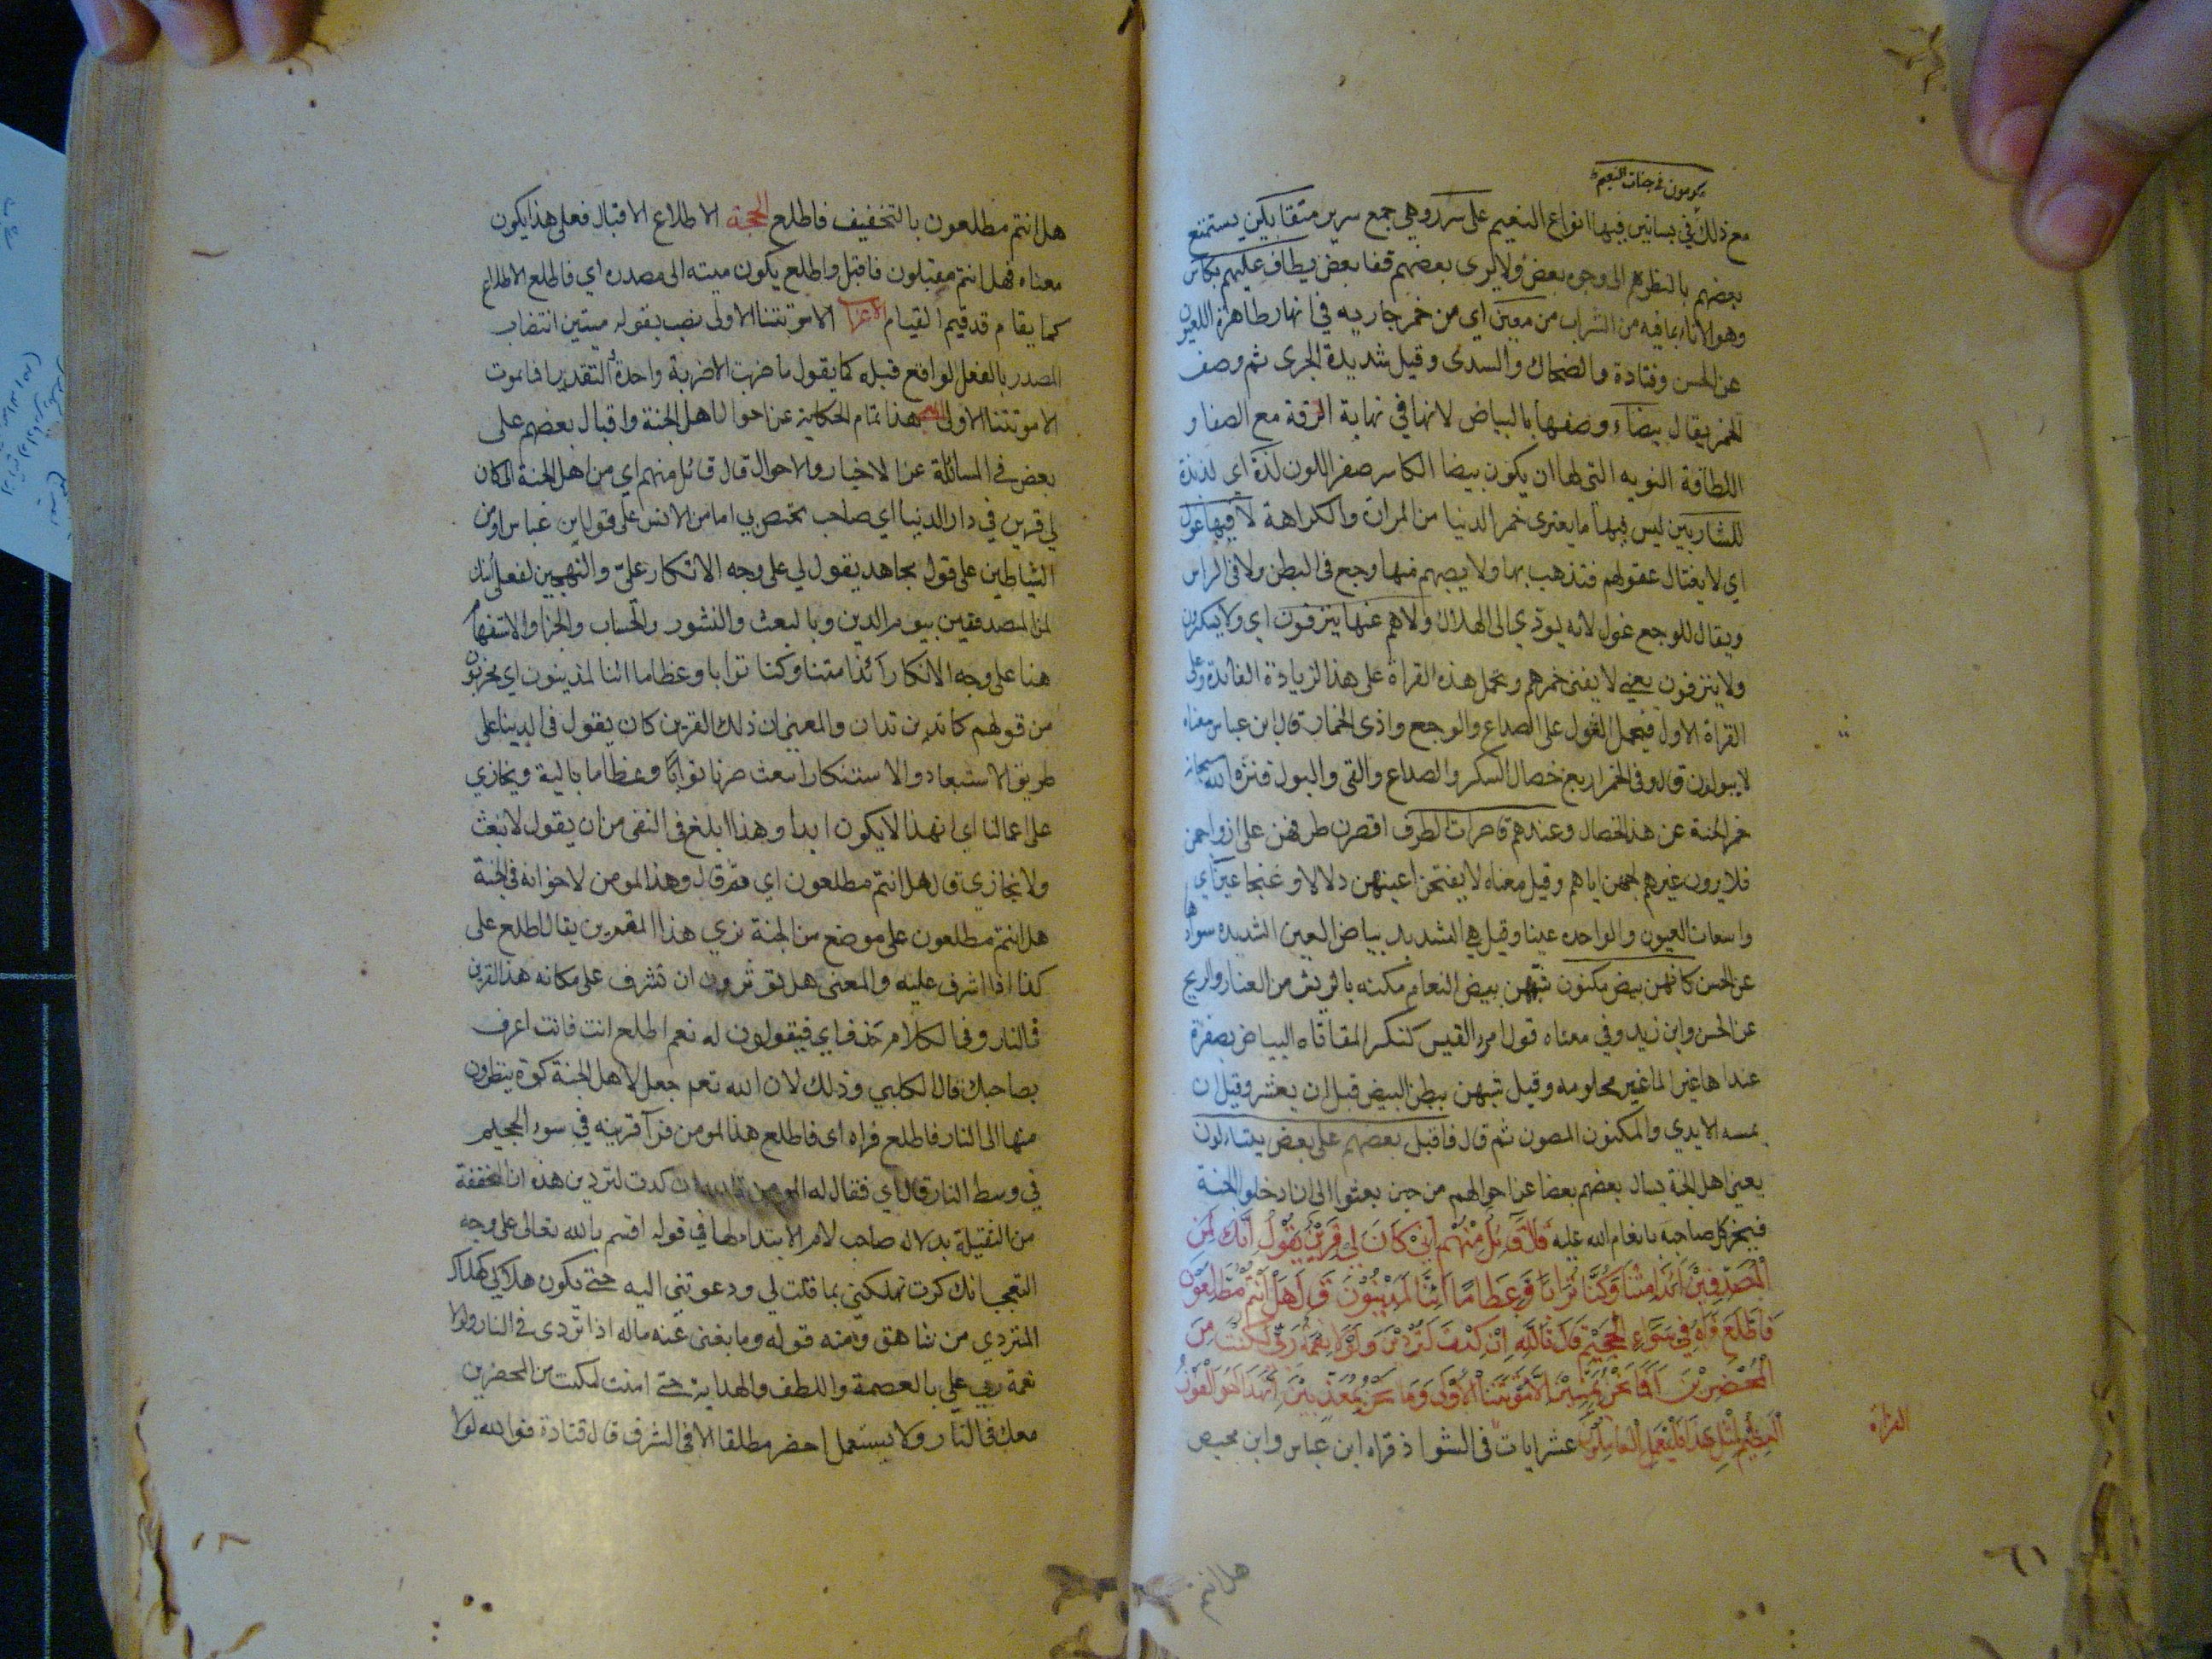 يكرمون في جنات النعيم
مع ذلك في بساتين فيها انواع النعيم على سرر وهي جمع سرير متقابلين يستمتع
بعضهم بالنظر هم الى وجوه بعض ولا يرى بعضهم قفا بعض يطاف عليهم بكاس
وهو الاناء بما فيه من الشراب من معين اي من خمر جاريه في انهار ظاهرة للعيون
عن الحسن وقتادة والضحاك والسدى وقيل شديدة الجرى ثم وصف
الخمر يقال بيضاء وصفها بالبياض لانها في نهاية الرقة مع الصفا و
اللطافة النوريه التي لها ان يكون بيضا الكاس صفر اللون لذة اي لذيذة
للشاربين ليس فيها ما يعترى خمر الدنيا من المرارة والكراهة لا فيها غول
اي لا يغتال عقولهم فتذهب بها ولا يصبهم منها وجع في البطن ولا في الراس
ويقال للوجع غول لانه يودي الى الهلاك ولا هم عنها ينزفون اي ولا يسكرون
ولا ينزفون يعني لا يفنى خمرهم وتحمل هذه القراة على هذا لزيادة الفائدة وعلى
القراة الاولى فيحمل الغول على الصداع والوجع واذى الخمار قال ابن عباس معناه
لا يبولون قال وفى الخمر اربع خصال السكر والصداع والقى والبول فنزه الله سبحانه
خمر الجنة عن هذه الخصال وعندهم قاصرات الطرف اقصرن طرفهن على ازواجهن
فلا يرون غيرهم لحبهن اياهم وقيل معناه لا يفتحن اعينهن دلالا وغنجا عين اي
واسعات العيون والواحده عينا وقيل هي الشديد بياض العين الشديدة سوادها
عن الحسن كانهن بيض مكنون شبههن ببيض النعام مكنه بالريش من الغبار والريح
عن الحسن وابن زيد وفي معناه قول امرء القيس كبكر المقاناه البياض بصفرة
غذاها غير الما غير محلومه وقيل شبهن ببطن البيض قبل ان يعشر وقيل ان
يمسه الايدي والمكنون المصون ثم قال فاقبل بعضهم على بعض يتسائلون
يعني اهل الجنة يسال بعضهم بعضا عن احوالهم من حين بعثوا الى ان ادخلوا الجنة
فيخبر كل صاحبه بانعام الله عليه قَالَ قَائِلٌ مِنْهُمْ اِنّي كَانَ لِي قَرِيْنٌ يَقُوْلُ أَئِنَّكَ لَمِنَ
الْمُصَدِّقِيْنَ أَئِذَا مِتْنَا وَكُنَّا تُرَابًا وَعِظَامًا أَئِنَّا لَمَدِيْنُوْنَ قَالَ هَلْ اَنْتُمْ مُطَّلِعُوْنَ
فَاطَّلَعَ فَرَاهُ فِي سَوَاءِ الْجَحِيْمِ قَالَ تَاللهِ اِنْ كِدْتَ لَتُرْدِيْنَ وَلَوْلَا نِعْمَةُ رَبِّي لَكُنْتُ مِنَ
الْمُحْضَرِيْنَ اَفَمَا نَحْنُ بِمَيِّتِيْنَ اِلَّا مَوْتَتَنَا الْأُوْلَى وَمَا نَحْنُ بِمُعَذَّبِيْنَ اِنَّ هَذَا لَهُوَ الْفَوْزُ
الْعَظِيْمُ لِمِثْلِ هَذَا فَلْيَعْمَلِ الْعَامِلُوْنَ عشر ايات فى الشواذ قراه ابن عباس وابن محيصن
القراة
هل انتم
٦١
هل انتم مطلعون بالتخفيف فاطلع الحجة الاطلاع الاقبال فعلى هذا يكون
معناه فهل انتم مقبلون فاقبل واطلع يكون مسنه الى مصدره اي فاطلع الاطلاع
كما يقام قد قيم القيام الاعراب الا موتتنا الاولى نصب بقوله ميتين انتصاب
المصدر بالفعل الواقع قبله كما يقول ما ضربت الا ضربة واحدة التقدير افما نموت
الا موتتنا الاولى المعنى هذا تمام الحكاية عن احوال اهل الجنة واقبال بعضهم على
بعض في المسائلة عن الاخبار والاحوال قال قائل منهم اي من اهل الجنة اني كان
لي قرين في دار الدنيا اي صاحب يختص بي اما من الانس على قول ابن عباس او من
الشياطين على قول مجاهد يقول لي على وجه الانكار علي والتهجين لفعلي ائنك
لمن المصدقين بيوم الدين وبالبعث والنشور والحساب والجزا والاستفهام
هنا على وجه الانكار ائذا متنا وكنا ترابا وعظاما ائنا لمدينون اي مجزيون
من قولهم كما تدين تدان والمعنى ان ذلك القرين كان يقول في الدنيا على
طريق الاستبعاد والاستنكار انبعث صرنا ترابًا وعظاما بالية ويجازي
على اعمالنا اي ان هذا لا يكون ابدا وهذا ابلغ في النفى من ان يقول لا نبعث
ولا نجازي قال هل انتم مطلعون اي ثم قال وهذا المومن لاخوانه في الجنة
هل انتم مطلعون على موضع من الجنة نرى هذا القرين يقال اطلع على
كذا اذا اشرف عليه والمعنى هل تؤثرون ان تشرف على مكانه هذا القرين
في النار وفى الكلام حذف اي فيقولون له نعم اطلع انت فانت اعرف
بصاحبك قال الكلبي وذلك لان الله تعم جعل لاهل الجنة كوة ينظرون
منها الى النار فاطلع فراه اى فاطلع هذا المومن فرآ قرينه في سواء الجحيم
في وسط النار قال اي فقال له المومن تالله ان كدت لتردين هذه ان المخففة
من الثقيلة بدلالة صاحب لام الابتداء لها في قوله اقسم بالله تعالى على وجه
التعجب انك كدت تهلكني بما قلت لي ودعوتني اليه حتى يكون هلاكي كهلاك
المتردي من شاهق ومنه قوله وما يغنى عنه ماله اذا تردى فى النار ولولا
نعمة ربي علي بالعصمة واللطف والهداية حتى امنت لكنت من المحضرين
معك في النار ولا يستعمل احضر مطلقا الا فى الشر قال قتادة فوالله لولا